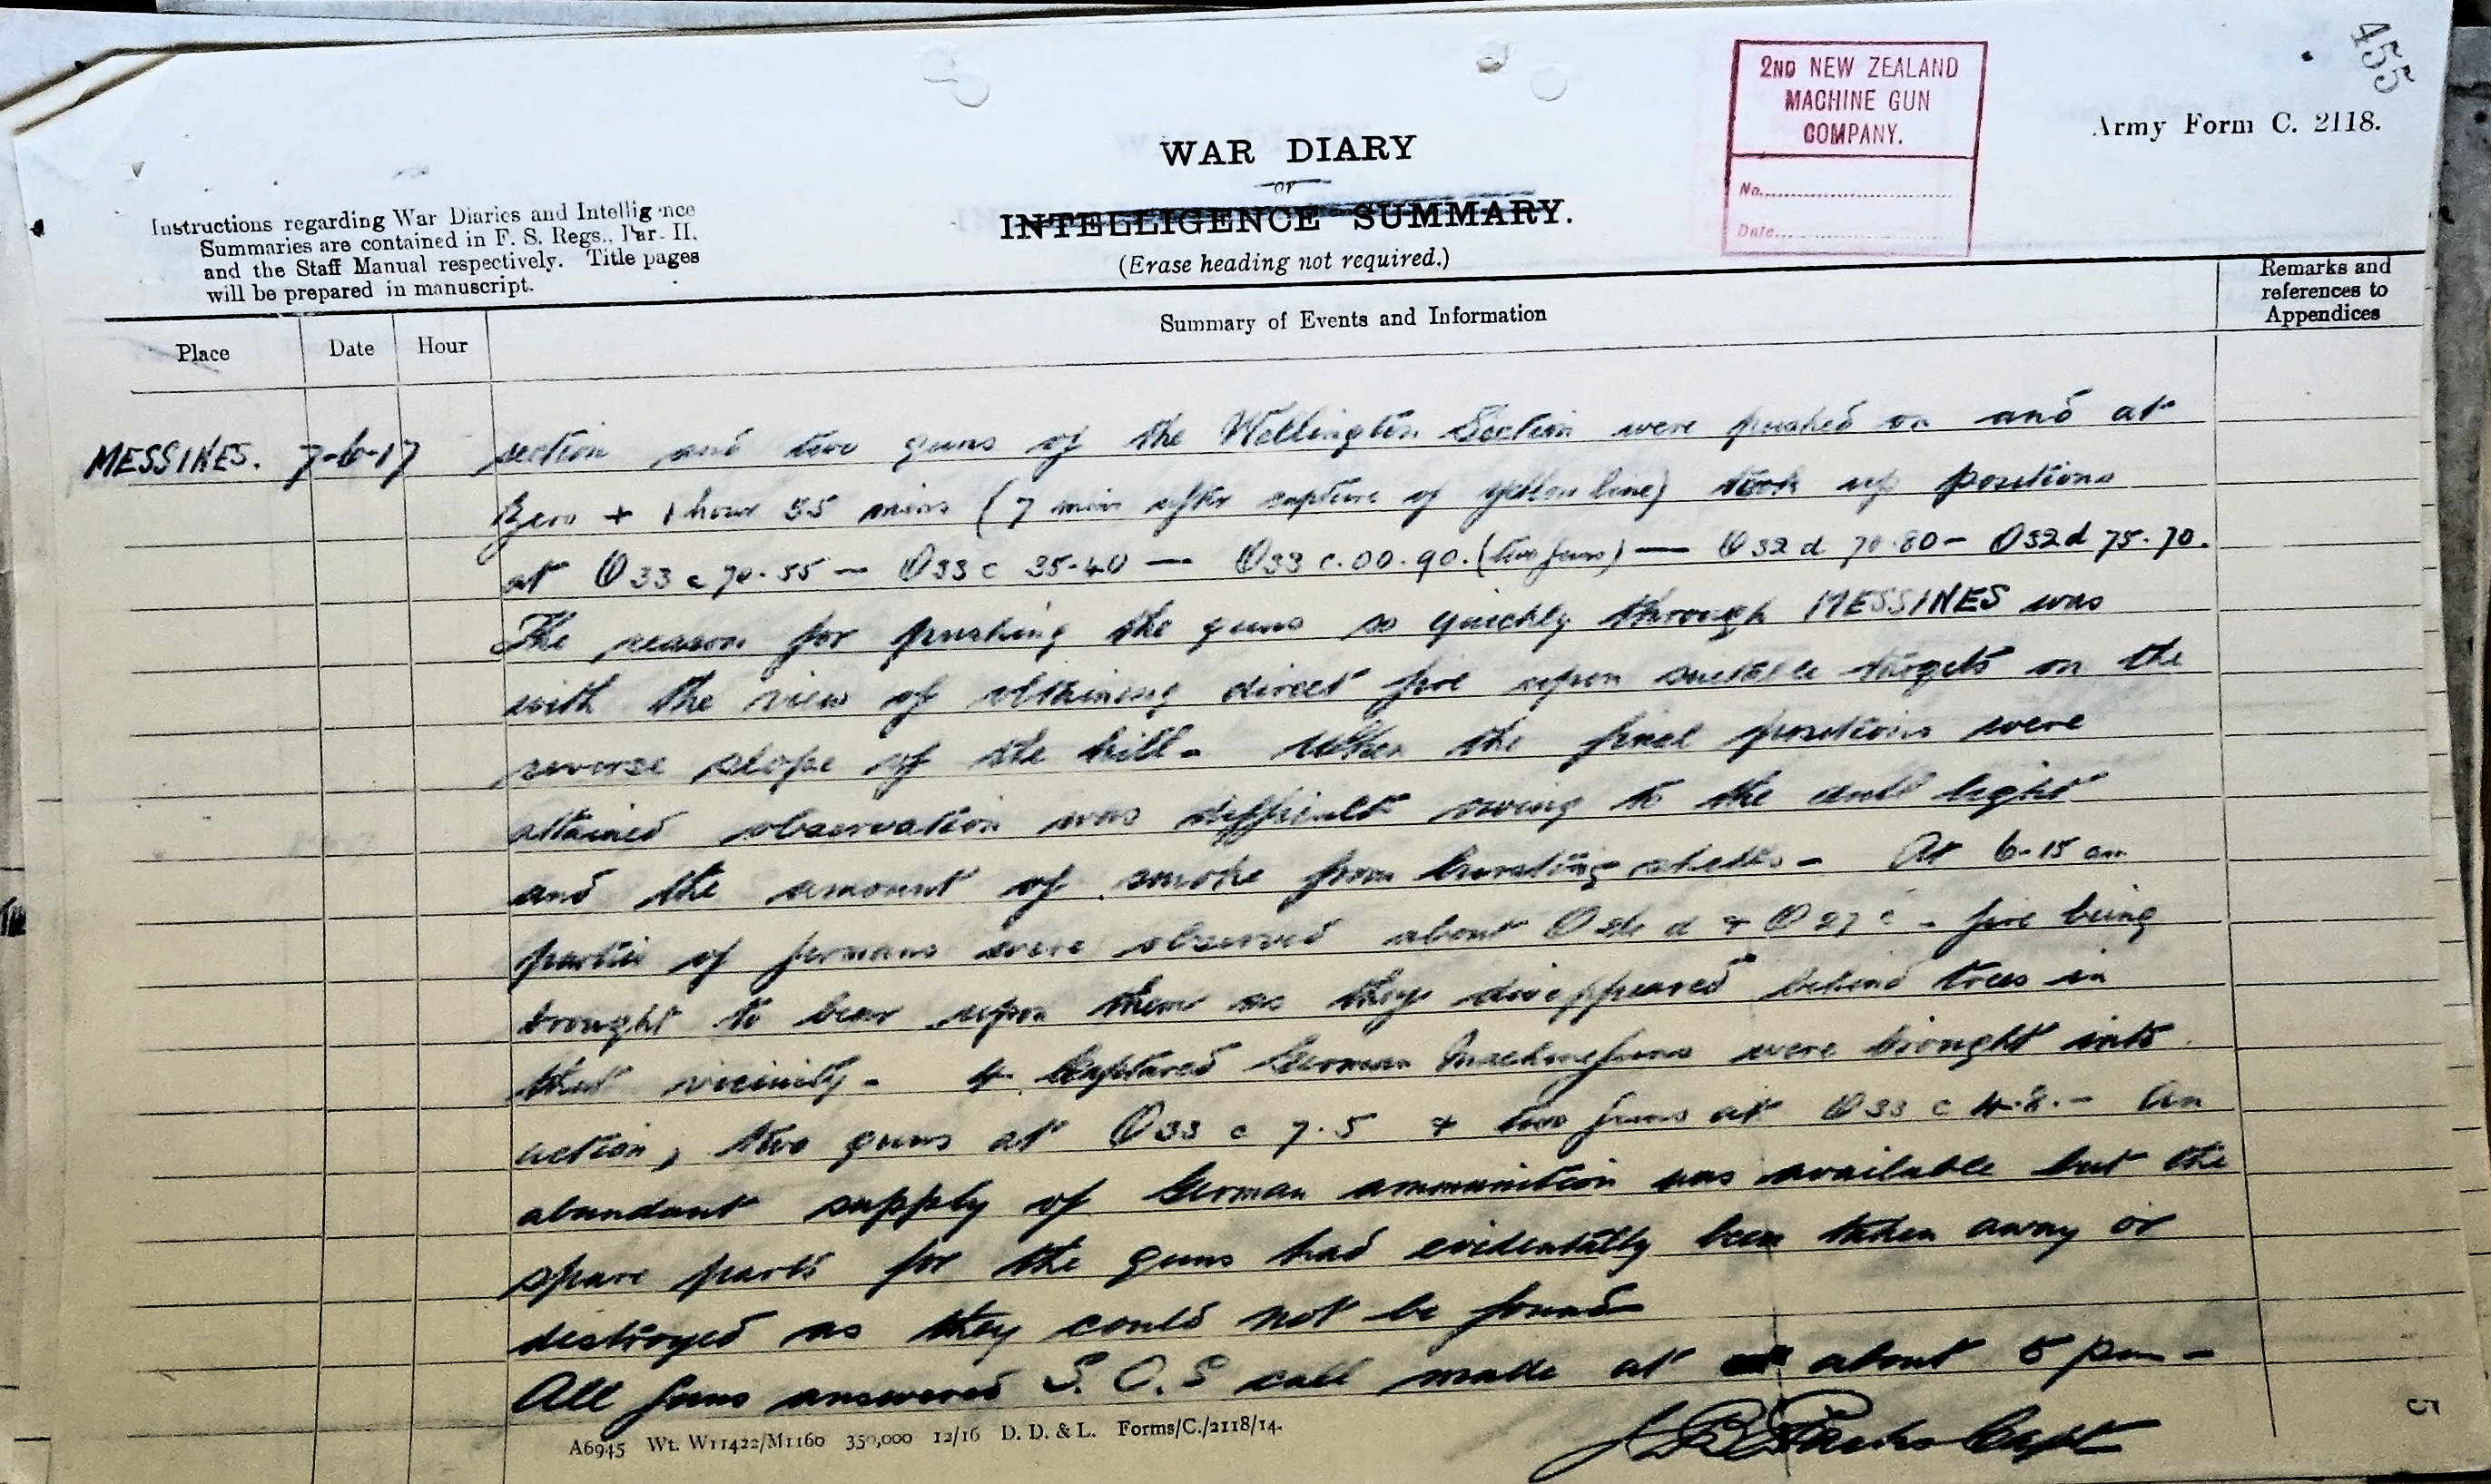 455
2ND NEW ZEALAND
MACHINE GUN
COMPANY.
No.
Date
Army Form C. 2118.
WAR DIARY
or
INTELLIGENCE SUMMARY.
(Erase heading not required.)
Instructions regarding War Diaries and Intelligence
Summaries are contained in F. S. Regs., Par. II.
and the Staff Manual respectively. Title pages
will be prepared in manuscript.
Place Date Hour Summary of Events and Information Remarks and
references to
Appendices
MESSINES. 7-6-17 section and two guns of the Wellington Section were pushed on and at
Zero + 1 hour 55 mins (7 min after capture of yellow line) took up positions
at O33 c 70.55 — O33 c 35.40 — O33 c.00.90. (two guns) — O32 d 70.80 — O32d 75.70.
The reason for pushing the guns so quickly through MESSINES was
with the view of obtaining direct fire upon suitable targets on the
reverse slope of the hill - When the final positions were
attained observation was difficult owing to the dull light
and the amount of smoke from bursting shells - At 6-15 am
parties of germans were observed about d + O 27 c - fire being
brought to bear upon them as they disappeared behind trees in
that vicinity - 4 Captured German Machine guns were brought into
action, two guns at O33 c 7.5 + two guns at O33 c 4.8. - An
abundant supply of German ammunition was available but the
spare parts for the guns had evidentally been taken away or
destroyed as they could not be found
All guns answered S.O.S call made at about 5 pm -
Capt
A6945 Wt. W11422/M1160 350,000 12/16 D. D. & L. Forms/C./2118/14.
5